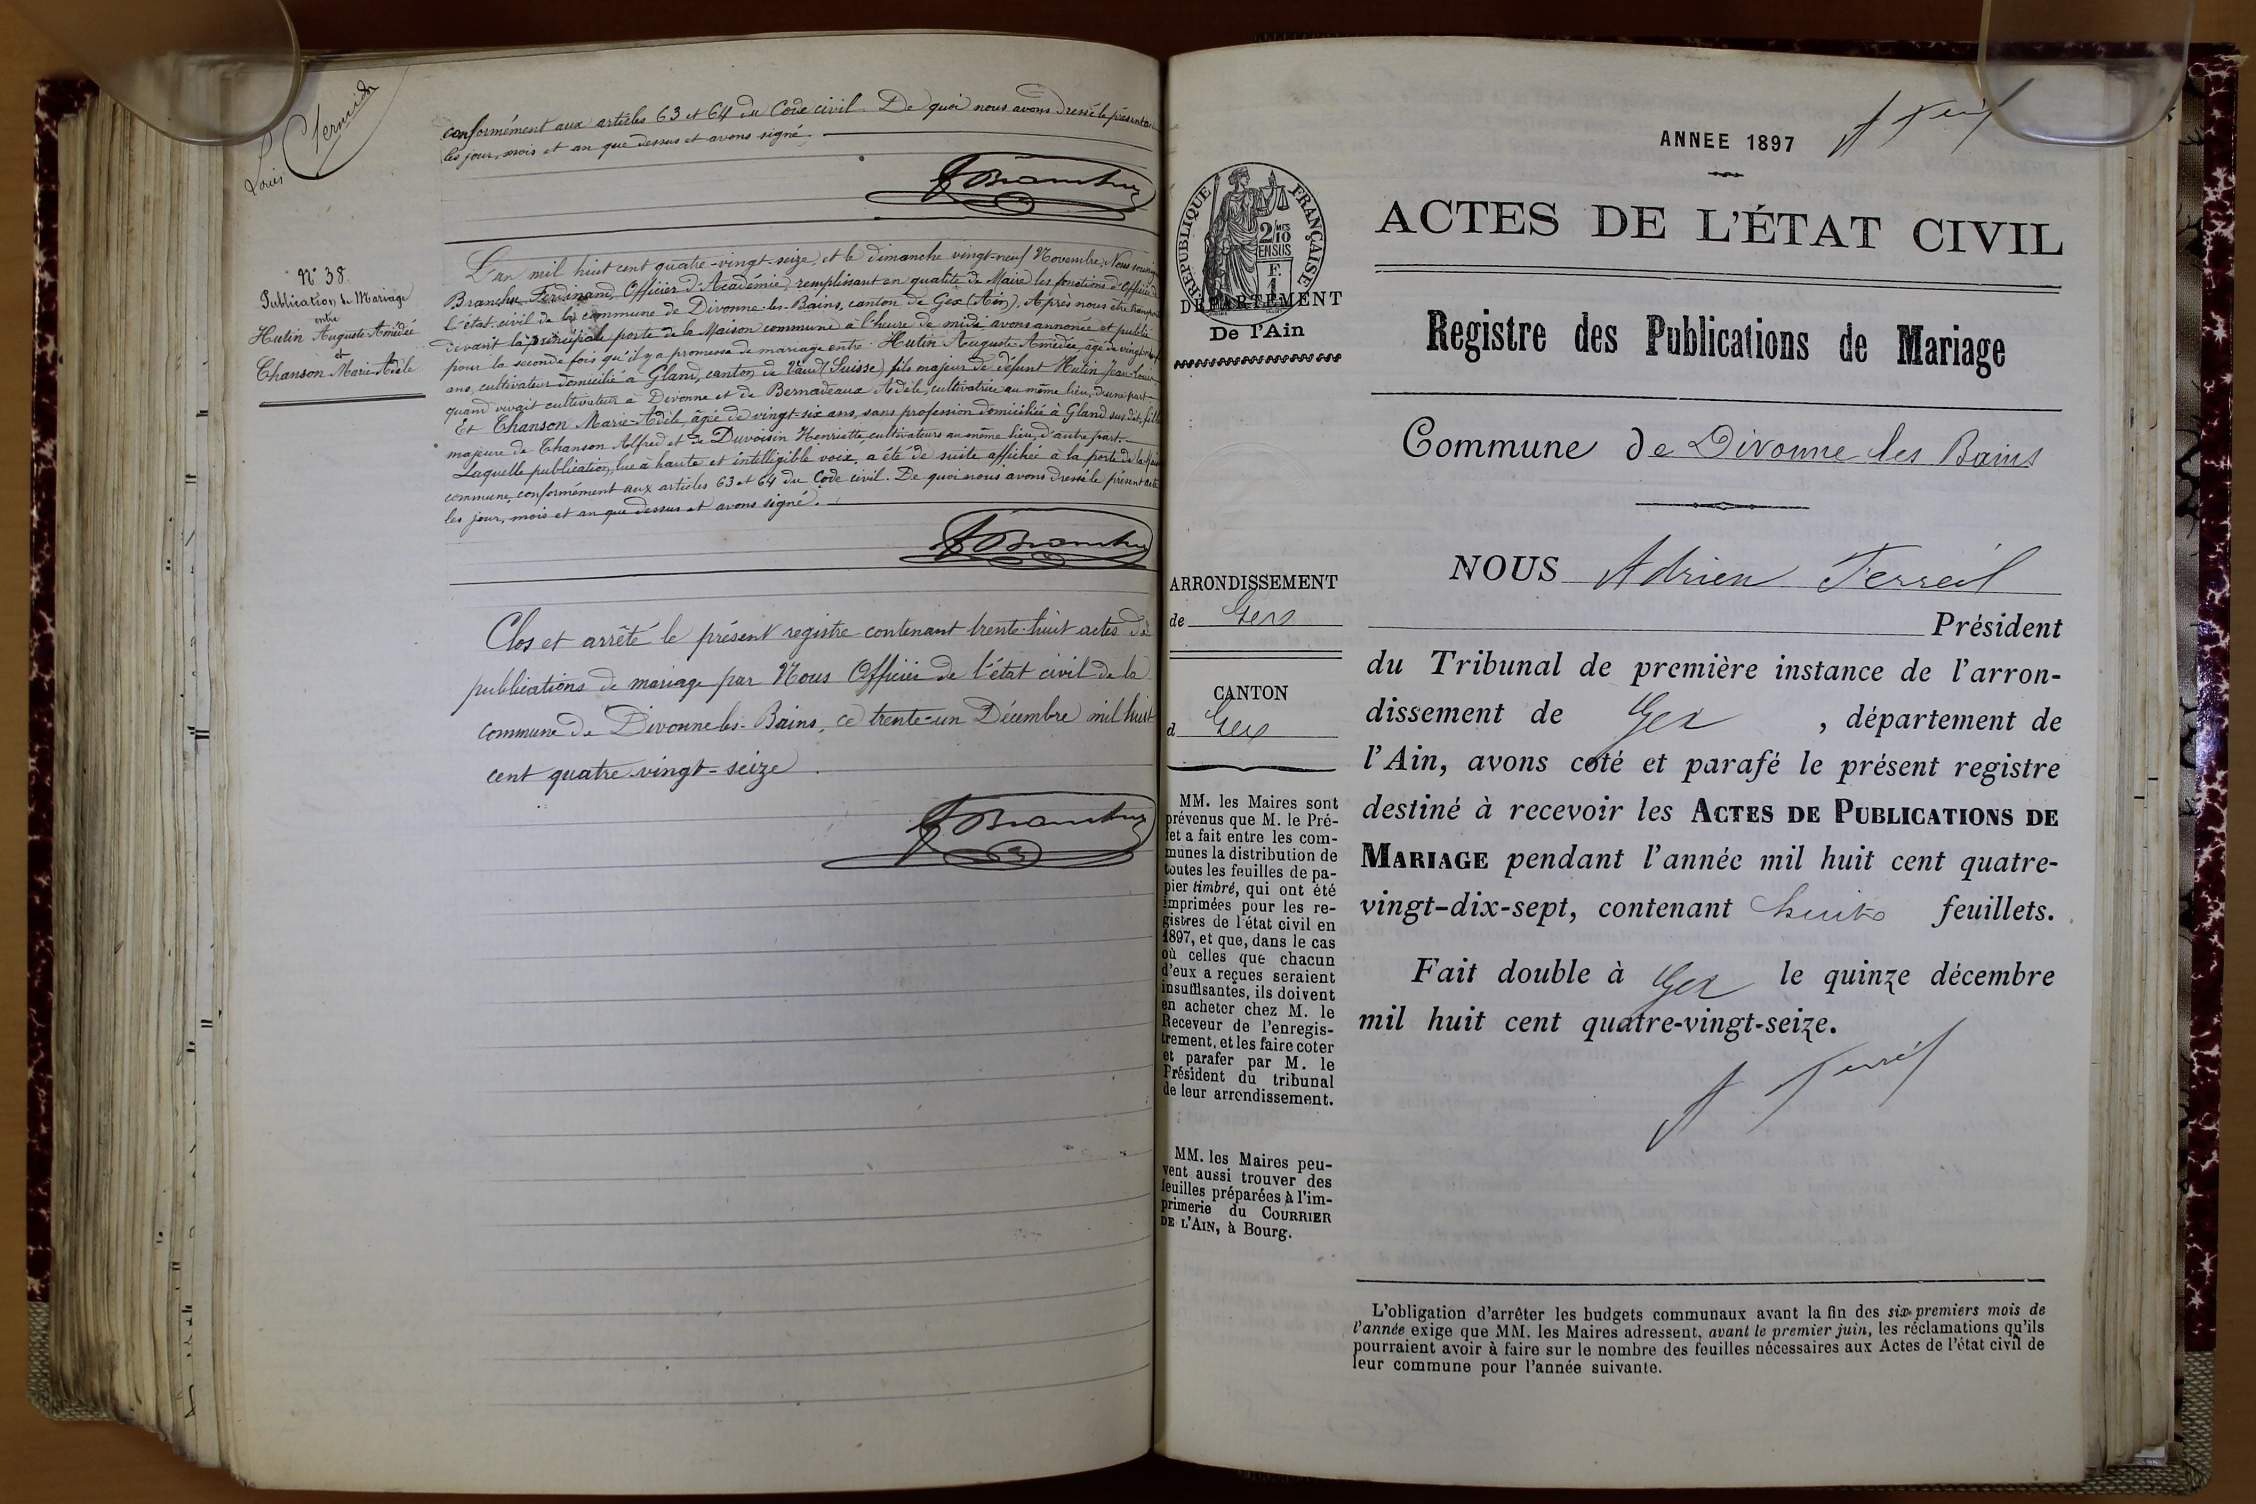 conformément aux articles 63 et 64 du Code civil. De quoi nous avons dressé le présent acte
les jour, mois et an que dessus et avons signé.
N° 38
Publication de Mariage
entre
Hutin Auguste-Amédée
et
Chanson Marie-Adèle
L'an mil huit cent quatre-vingt-seize, et le dimanche vingt-neuf Novembre, Nous
Branchu Ferdinand, Officier d'Académie, remplissant en qualité de Maire les fonctions d'Officier de
l'état-civil de la commune de Divonne-les-Bains, canton de Gex (Ain). Après nous être
devant la principale porte de la Maison commune à l'heure de midi avons annoncé et publié
pour la seconde fois qu'il y a promesse de mariage entre Hutin Auguste-Amédée, âgé de
ans, cultivateur domicilié à Gland, canton de Vaud (Suisse) fils majeur de défunt Hutin Jean-Louis
quand vivait cultivateur à Divonne et de Bernadeaux Adèle, cultivatrice au même lieu, d'une part
Et Chanson Marie-Adèle, âgée de vingt-six ans, sans profession domiciliée à Gland sus dit, fille
majeure de Chanson Alfred et de Duvoisin Henriette, cultivateurs au même lieu, d'autre part.
Laquelle publication, lue à haute et intelligible voix, a été de suite affichée à la porte de la
commune, conformément aux articles 63 et 64 du Code civil. De quoi nous avons dressé le présent acte
les jour, mois et an que dessus et avons signé.
Clos et arrêté le présent registre contenant trente-huit actes de
publications de mariage par Nous Officier de l'état civil de la
commune de Divonne-les-Bains, ce trente-un Décembre mil huit
cent quatre-vingt-seize.
ANNEE 1897
REPUBLIQUE FRANÇAISE
DEPARTEMENT
De l'Ain
ACTES DE L'ÉTAT CIVIL
Registre des Publications de Mariage
Commune de Divonne les Bains
ARRONDISSEMENT
de Gex
CANTON
d Gex
MM. les Maires sont
prévenus que M. le Pré-
fet a fait entre les com-
munes la distribution de
toutes les feuilles de pa-
pier timbré, qui ont été
imprimées pour les re-
gistres de l'état civil en
1897, et que, dans le cas
où celles que chacun
d'eux a reçues seraient
insuffisantes, ils doivent
en acheter chez M. le
Receveur de l'enregis-
trement, et les faire coter
et parafer par M. le
Président du tribunal
de leur arrondissement.
MM. les Maires peu-
vent aussi trouver des
feuilles préparées à l'im-
primerie du COURRIER
DE L'AIN, à Bourg.
NOUS Adrien Ferreil
Président
du Tribunal de première instance de l'arron-
dissement de Gex , département de
l'Ain, avons coté et parafé le présent registre
destiné à recevoir les ACTES DE PUBLICATIONS DE
MARIAGE pendant l'année mil huit cent quatre-
vingt-dix-sept, contenant huit feuillets.
Fait double à Gex le quinze décembre
mil huit cent quatre-vingt-seize.
L'obligation d'arrêter les budgets communaux avant la fin des six premiers mois de
l'année exige que MM. les Maires adressent, avant le premier juin, les réclamations qu'ils
pourraient avoir à faire sur le nombre des feuilles nécessaires aux Actes de l'état civil de
leur commune pour l'année suivante.